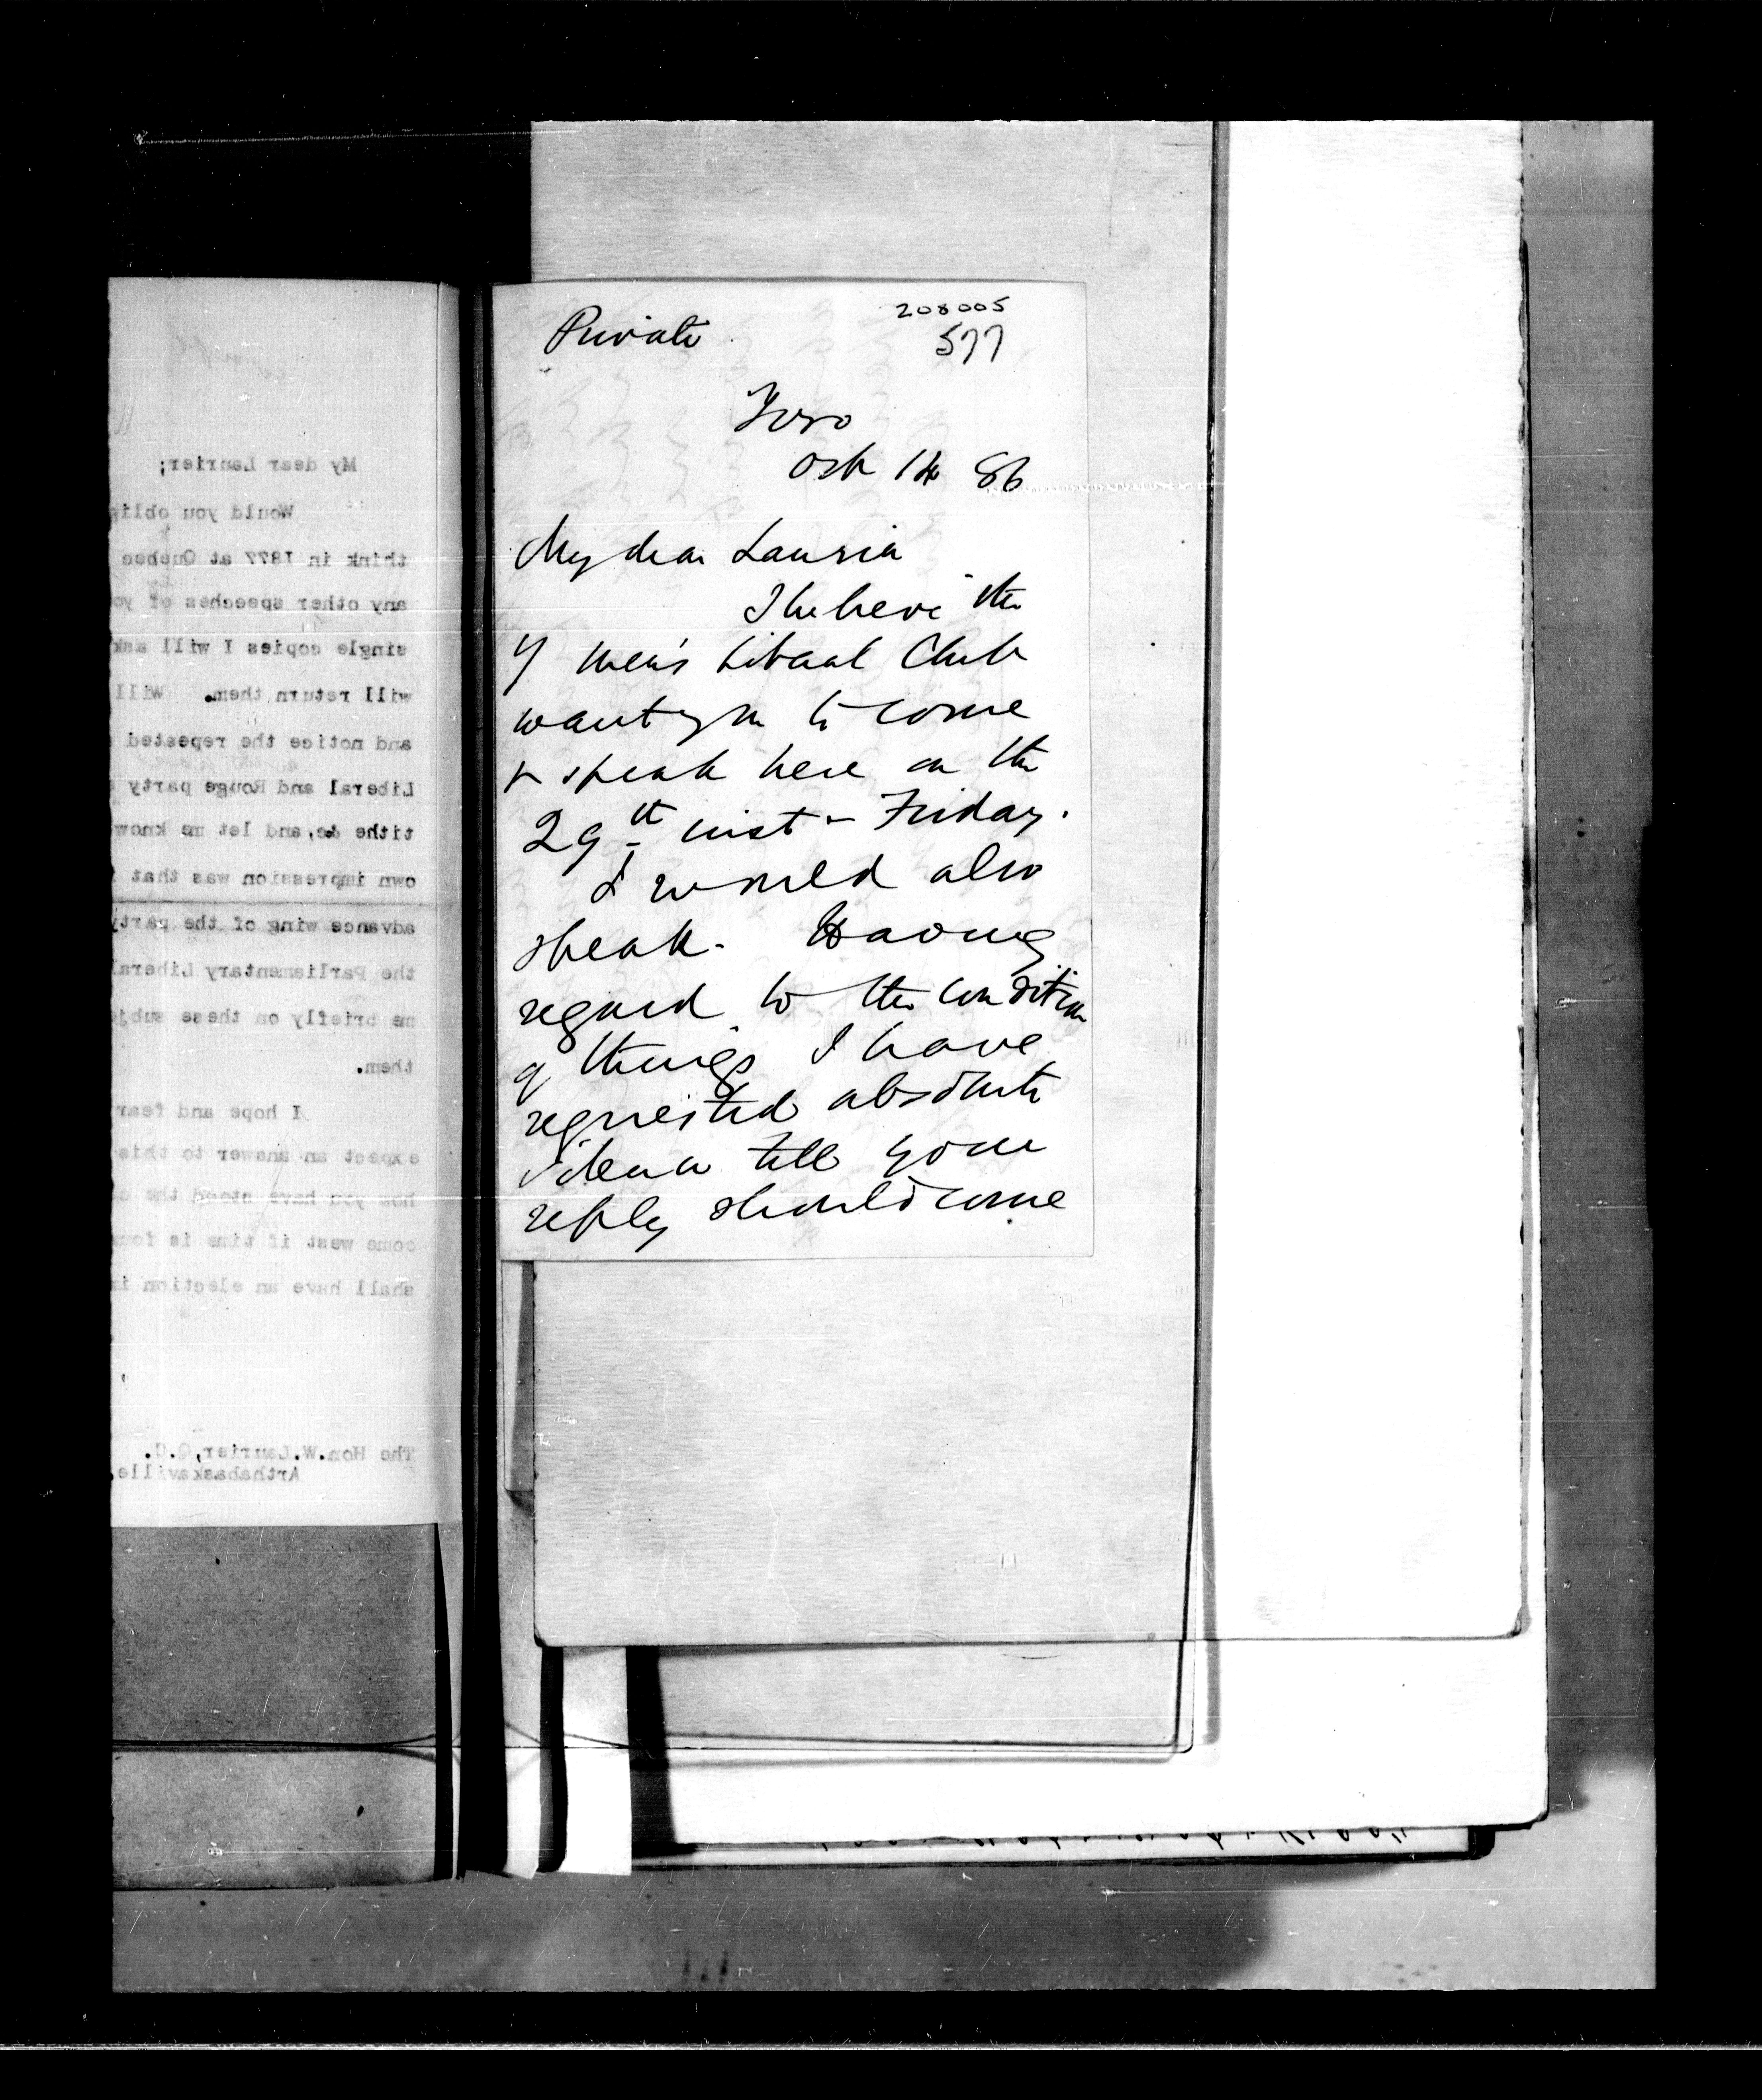 My dear Laurier;
Would you oblig
think in 1877 at Quebec
any other speeches of yo
single copies I will ask
will return them. Will
and notice the repeated
Liberal and Rouge party
tithe &c, and let me know
own impression was that
advance wing of the party
the Parliamentary Liberal
me briefly on these subj
them.
I hope and fear
expect an answer to this
how you have stood the
come west if time is fou
shall have an election i
The Hon. W. Laurier, Q.C.
Arthabaskaville.
208005
Private 577
Toro
Oct 14 86
My dear Laurier
I believe the
Y men's Liberal Club
want you to come
& speak here on the
29th inst - Friday.
I would also
speak. Having
regard to the condition
of things I have
requested absolute
silence till your
reply should come